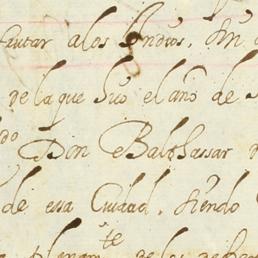 tar a los Indios, sin
de la que hizo el año de
do
Don Balthassar d
de essa Ciudad, siendo
te
de los